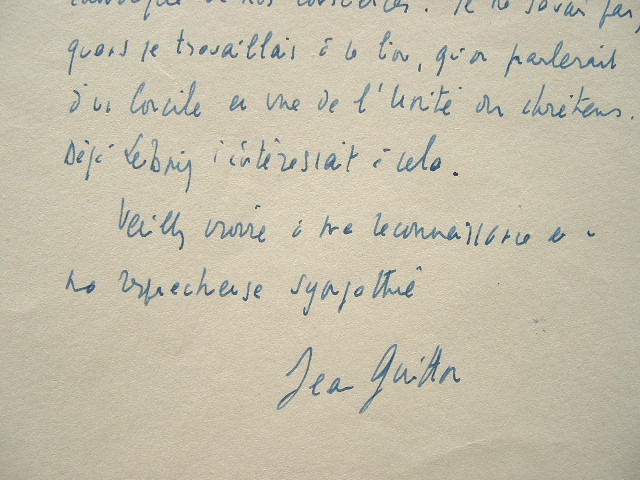 de nos consciences. Je ne savais pas,
quand je travaillais à ce livre, qu'on parlerait
d'un Concile en vue de l'Unité des chrétiens.
Déjà Leibniz s'intéressait à cela.
Veuillez croire à ma reconnaissance et à
ma respectueuse sympathie
Jean Guitton